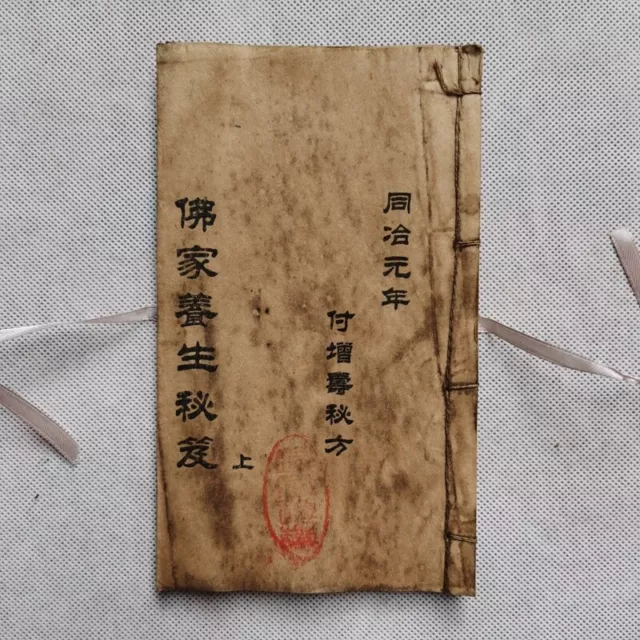 同治元年
付增壽秘方
佛家養生秘笈
上